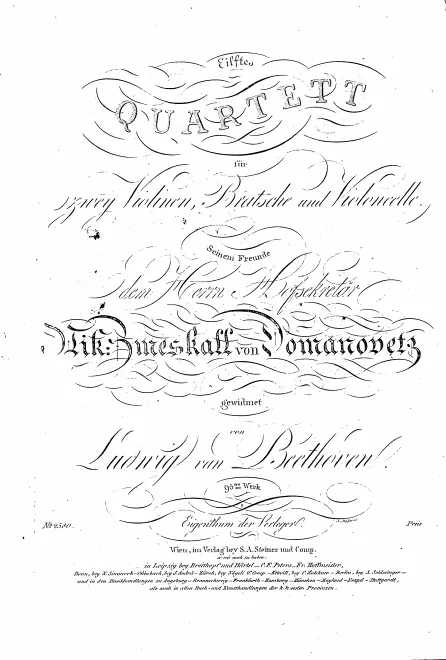 Eilftes
QUARTETT
für
zwey Violinen, Bratsche und Violoncelle.
Seinem Freunde
dem Herrn Hofsekretär
Nik: Zmeskall von Domanovetz
gewidmet
von
Ludwig van Beethoven.
95tes Werk.
Eigenthum der Verleger.
No 2580. Preis
Wien, im Verlag bey S. A. Steiner und Comp.
so wie auch zu haben:
in Leipzig bey Breitkopf und Härtel — C. F. Peters — Fr. Hofmeister,
Bonn, bey N. Simrock — Offenbach, bey J. André — Zürch, bey Nägeli & Comp. — bey C. — Berlin, bey A. Schlesinger —
und in den Musikhandlungen zu Augsburg — Braunschweig — Frankfurth — Hamburg — München — Mayland — — Stuttgardt,
als auch in allen Buch- und Kunsthandlungen der k. k. austr. Provinzen.